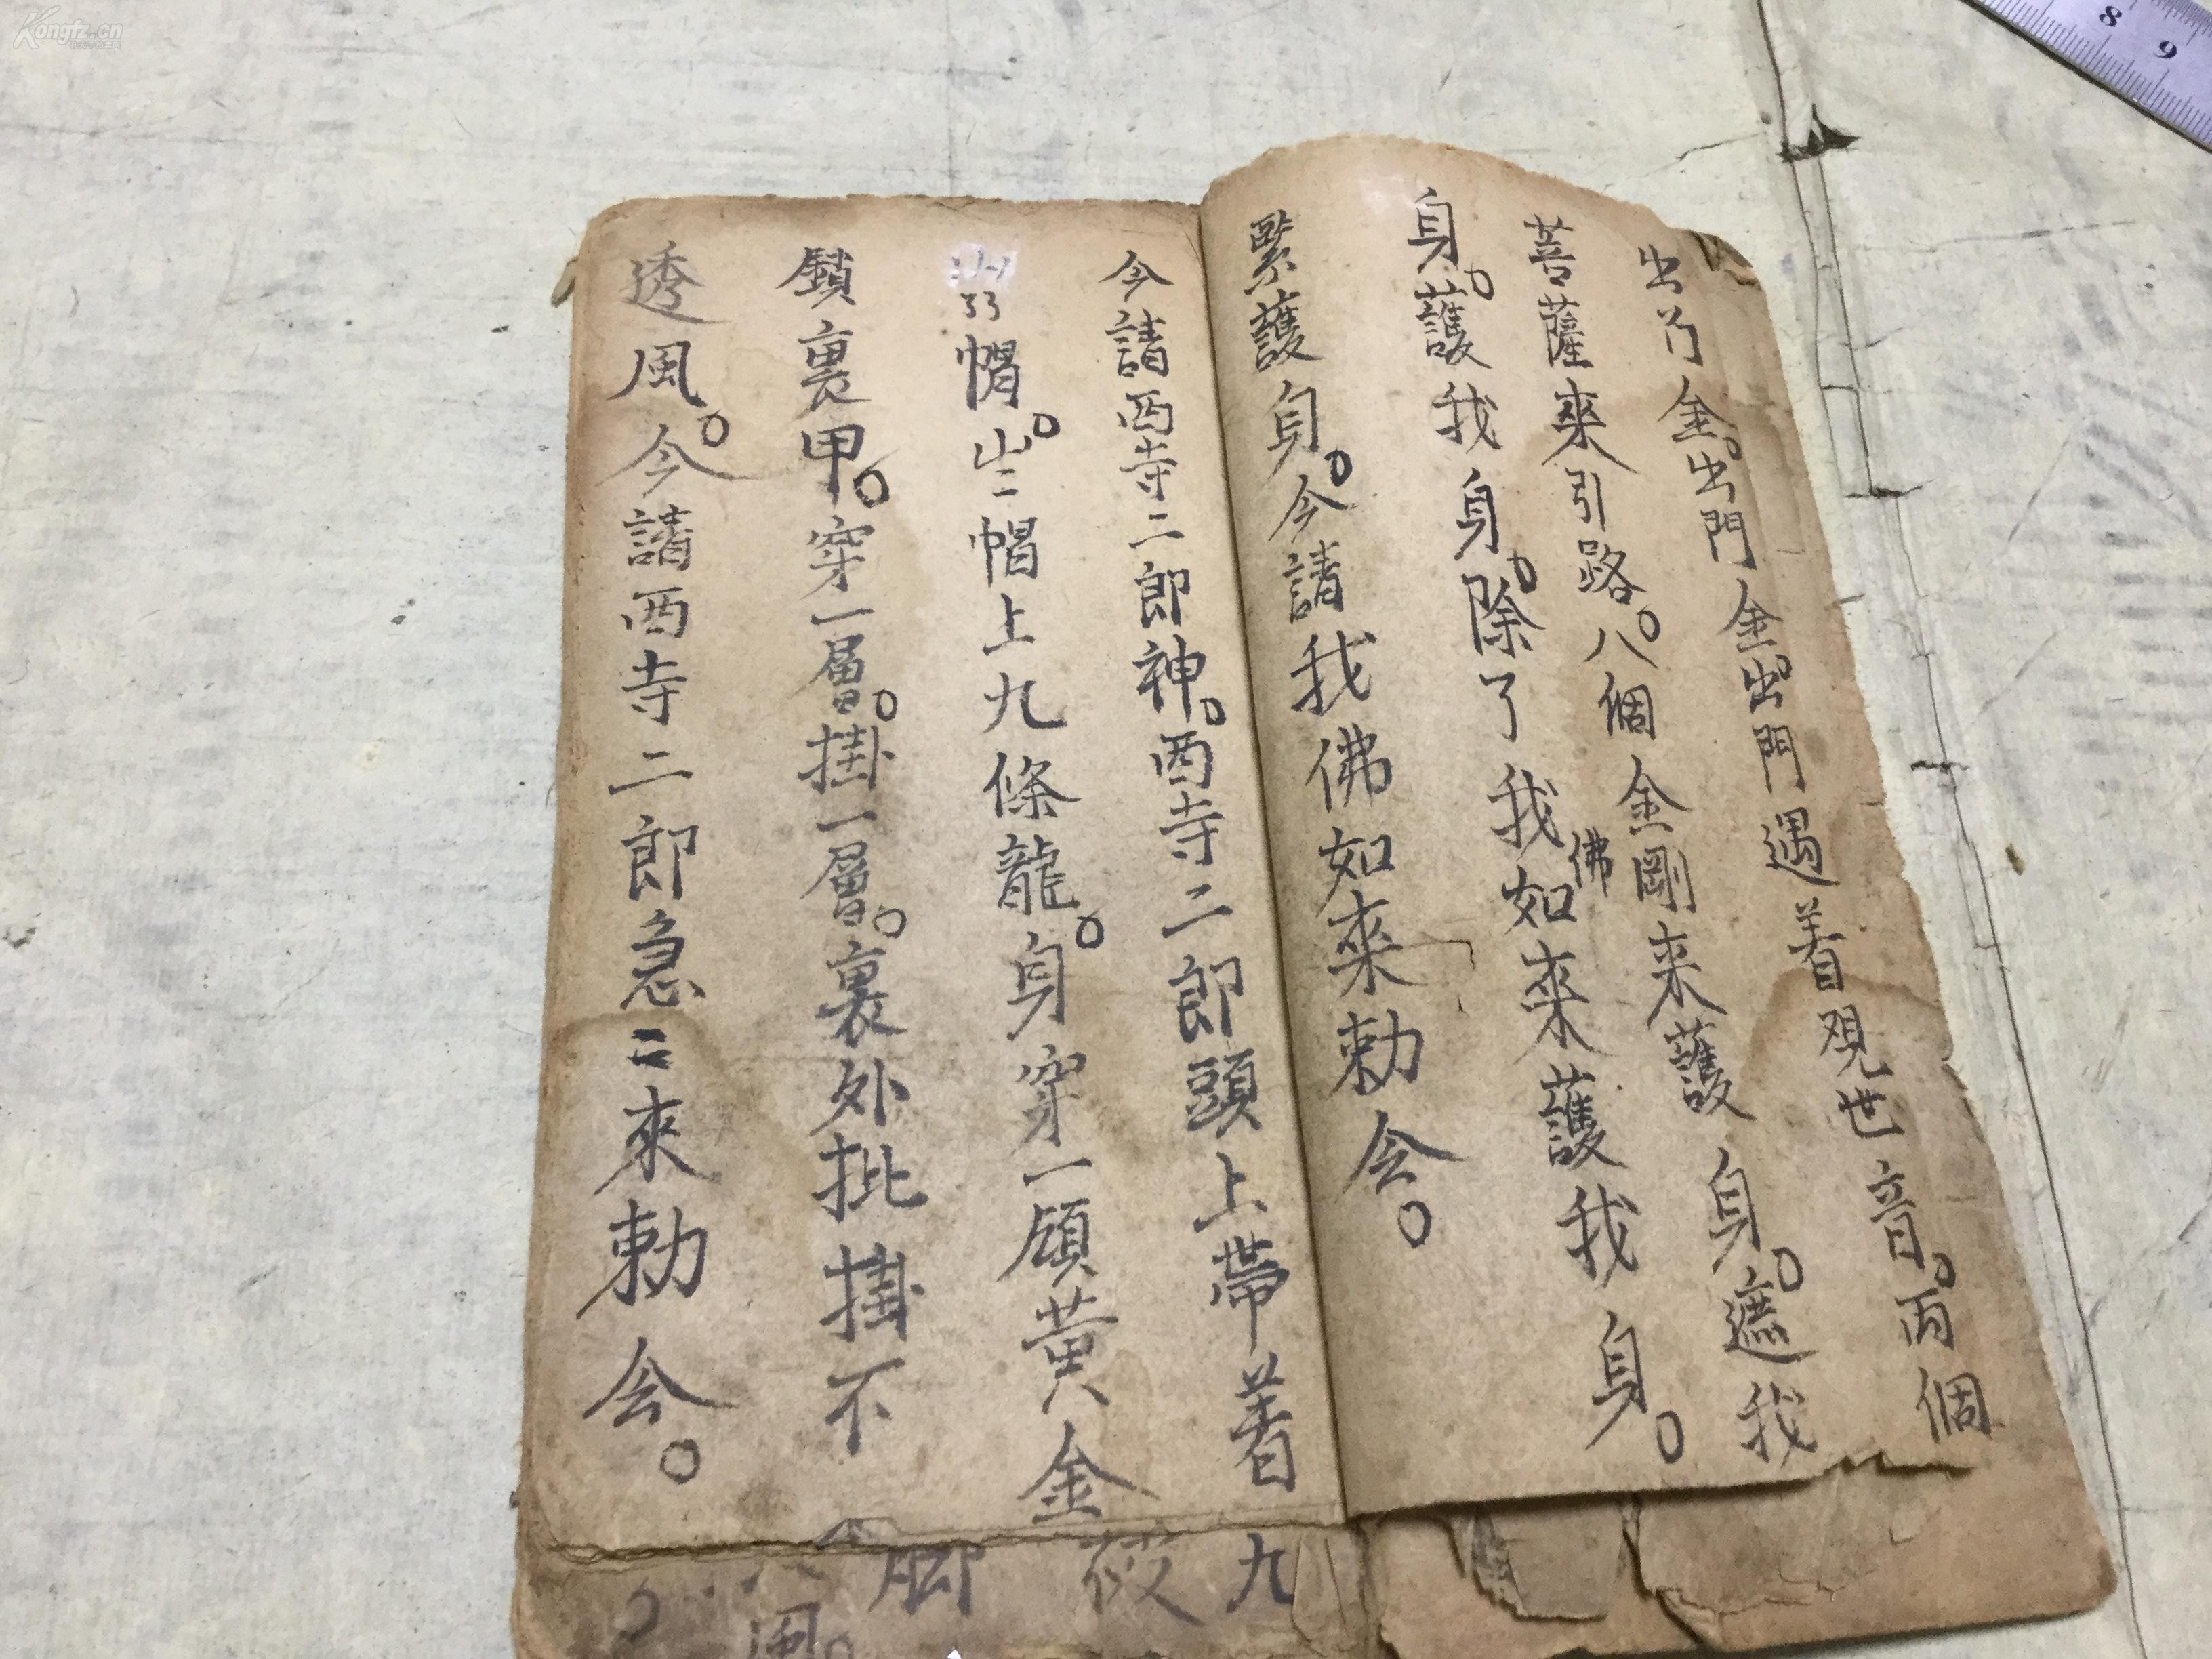 出门金。出門金。出門遇着观世音。两個
菩薩來引路。八個金剛来護身。遮我
身。護我身。除了我佛如来護我身。
緊護身。今請我佛如來勅令。
今請西寺二郎神。西寺二郎頭上帶着
帽。山二帽上九條龍。身穿一頎黃金
鎖裏甲。穿一層。掛一層。裏外批掛不
透風。今請西寺二郎急二來勅令。
九
脚
風。
Kongfz.cn
8 9